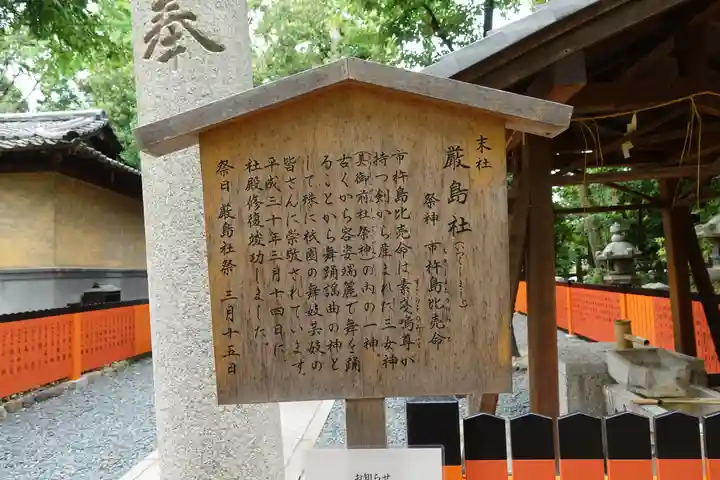 奉
末社
厳島社
祭神 市杵島比売命
市杵島比売命は素戔嗚尊が
持つ剣から産まれた三女神
(美御前社祭神)の内の一神。
古くから容姿端麗で舞を踊
ることから舞踊謡曲の神と
して殊に祇園の舞妓芸妓の
皆さんに崇敬されています。
平成三十年三月十四日に
社殿修復竣功しました。
祭日 厳島社祭 三月十五日
お知らせ